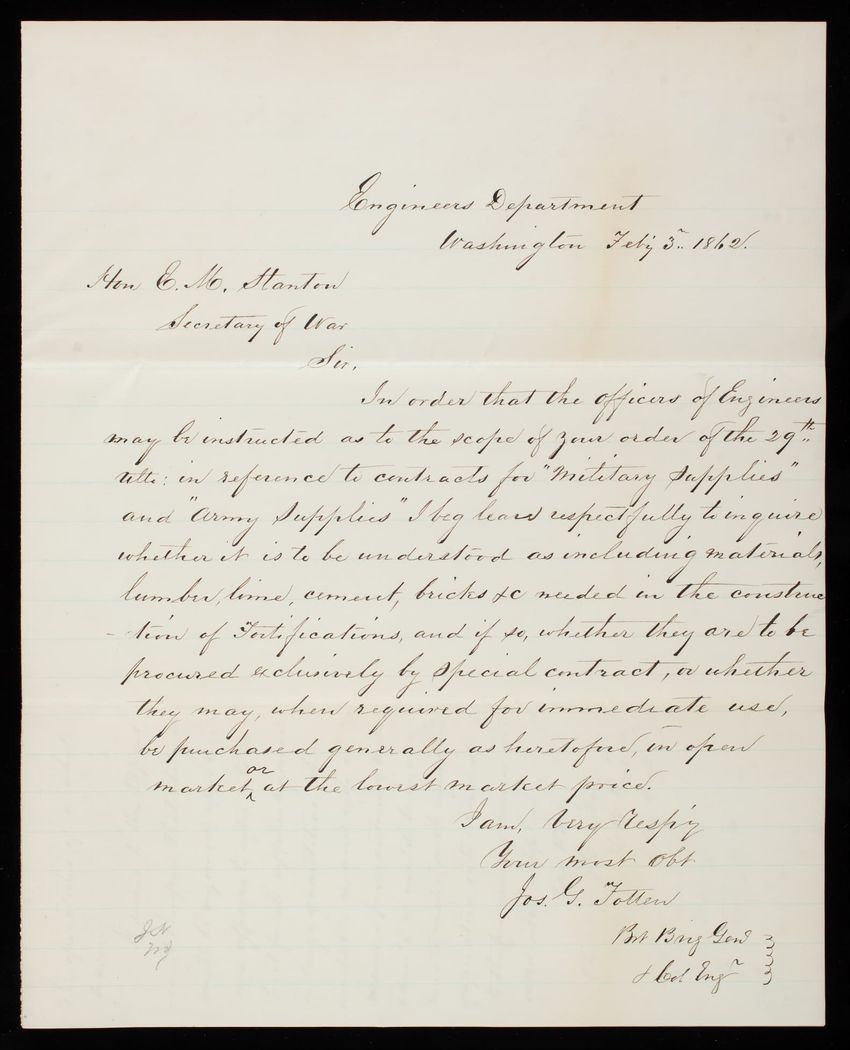 Engineers Department
Washington Feby 3d. 1862.
Hon E. M. Stanton
Secretary of War
Sir,
In order that the officers of Engineers
may be instructed as to the scope of your order of the 29th
ulto: in reference to contracts for "Military Supplies"
and "Army Supplies" I beg leave respectfully to inquire
whether it is to be understood as including materials,
lumber, lime, cement, bricks &c needed in the construc
-tion of Fortifications, and if so, whether they are to be
procured exclusively by special contract, or whether
they may, when required for immediate use,
be purchased generally as heretofore, in open
market, or at the lowest market price.
I am, Very Respy
Your most obt
Jos. G. Totten
Bvt Brig Genl
& Col Engr